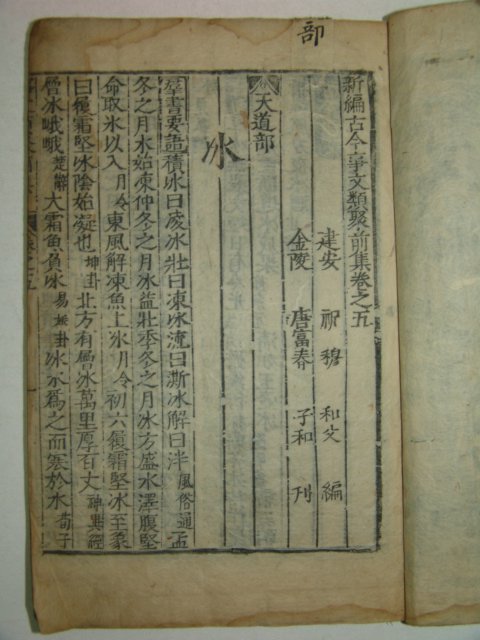 部
新編古今事文類聚前集卷之五
建安 祝穆 和父 編
金陵 唐富春 子和 刊
天道部
氷
羣書要語積氷曰凌氷壯曰凍氷流曰澌氷解曰泮風俗通孟
冬之月水始凍仲冬之月氷益壯季冬之月氷方盛水澤腹堅
命取氷以入月令東風解凍魚上氷月令初六履霜堅氷至象
曰履霜堅氷陰始凝也坤卦北方有層氷萬里厚百丈神異經
層氷峨峨楚辭大霜魚負氷易緯卦氷水爲之而寒於水荀子